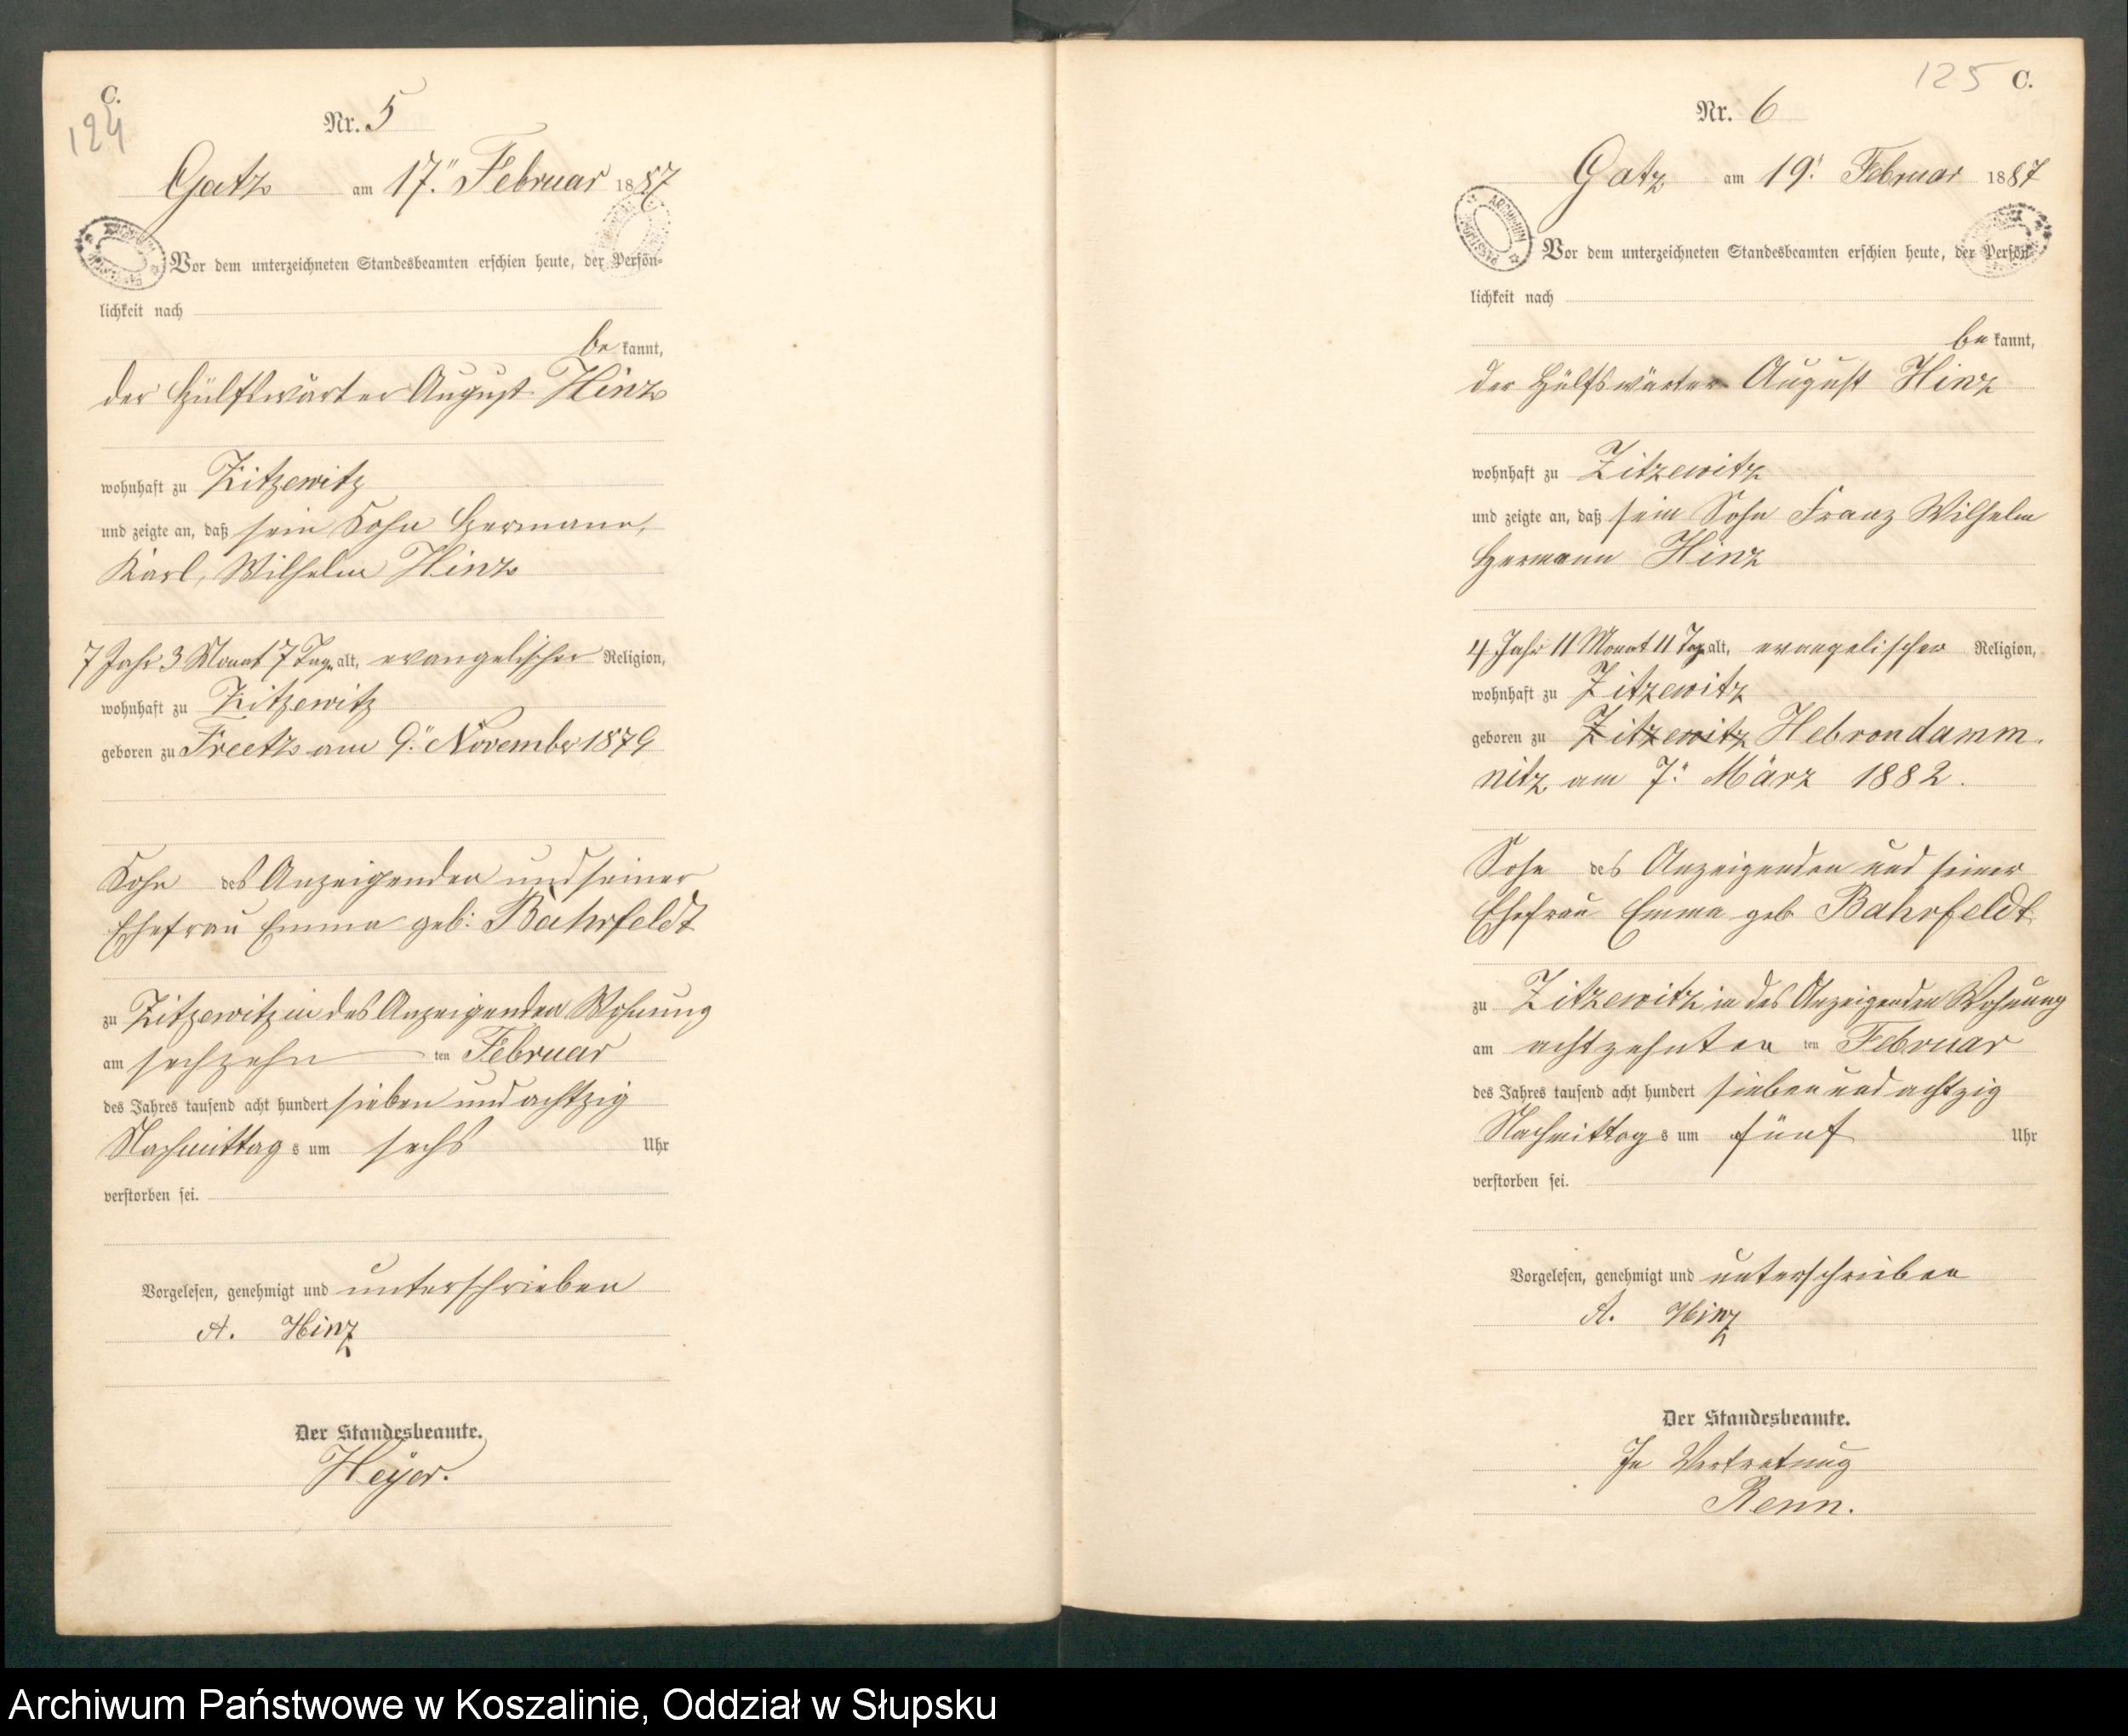 C.
124
Nr. 5
Gatz am 17. Februar 1887
Vor dem unterzeichneten Standesbeamten erschien heute, der Persön-
lichkeit nach
be kannt,
der Hülfswärter August Hinz
wohnhaft zu Zitzewitz
und zeigte an, daß sein Sohn Hermann,
Karl, Wilhelm Hinz
7 Jahr 3 Monat 7 Tag alt, evangelischer Religion,
wohnhaft zu Zitzewitz
geboren zu Freetz am 9. November 1879
Sohn des Anzeigenden und seiner
Ehefrau Emma geb: Bahrfeldt
zu Zitzewitz in des Anzeigenden Wohnung
am sechzehn ten Februar
des Jahres tausend acht hundert sieben und achtzig
Nachmittag s um sechs Uhr
verstorben sei.
Vorgelesen, genehmigt und unterschrieben
A. Hinz
Der Standesbeamte.
Heyer.
125 C.
Nr. 6
Gatz am 19. Februar 1887
Vor dem unterzeichneten Standesbeamten erschien heute, der Persön-
lichkeit nach
be kannt,
der Hülfswärter August Hinz
wohnhaft zu Zitzewitz
und zeigte an, daß sein Sohn Franz Wilhelm
Hermann Hinz
4 Jahr 11 Monat 11 Tag alt, evangelischer Religion,
wohnhaft zu Zitzewitz
geboren zu Zitzewitz Hebrondamm-
nitz am 7. März 1882.
Sohn des Anzeigenden und seiner
Ehefrau Emma geb. Bahrfeldt
zu Zitzewitz in des Anzeigenden Wohnung
am achtzehnten ten Februar
des Jahres tausend acht hundert sieben und achtzig
Nachmittag s um fünf Uhr
verstorben sei.
Vorgelesen, genehmigt und unterschrieben
A. Hinz
Der Standesbeamte.
In Vertretung
Renn.
Archiwum Państwowe w Koszalinie, Oddział w Słupsku